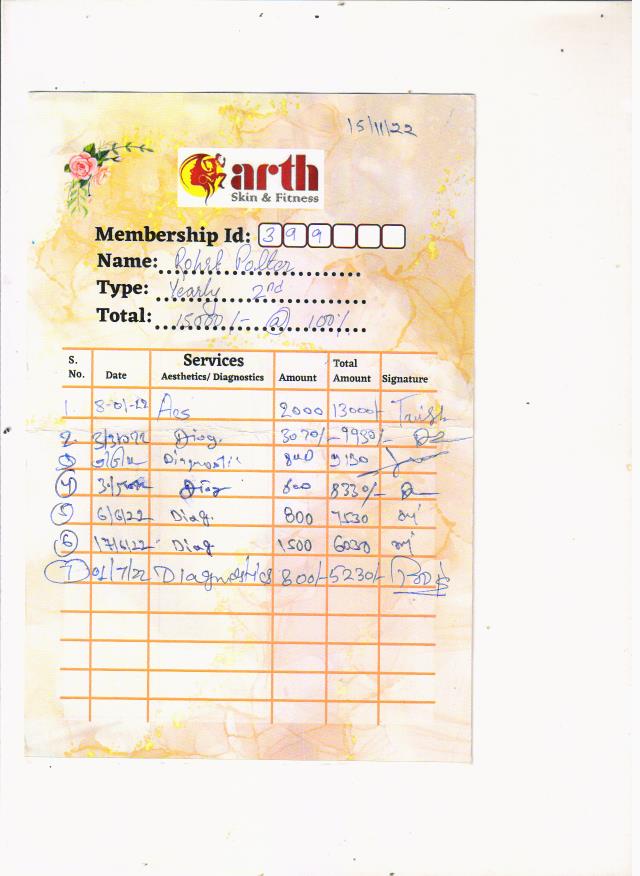 15/11/22
arth
Skin & Fitness
Membership Id: 399
Name:
Type: Yearly 2nd
Total: 15000/- @ 100%
S. No. Date Services Aesthetics/ Diagnostics Amount Total Amount Signature
1. 8-01-22 Aes 2000 13000/-
2. Diag. 3070/- 9930/-
3 Diagnostic 800 9130
4 Diag 800 8330/-
5 6/6/22 Diag. 800 7530
6 17/6/22 Diag 1500 6030
7 01/7/22 Diagnostics 800/- 5230/-